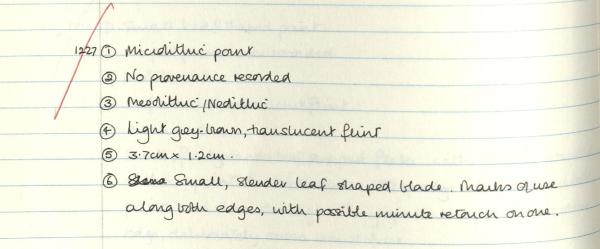 1227 ① Microlithic point
② No provenance recorded
③ Mesolithic/Neolithic
④ Light grey-brown, translucent flint
⑤ 3.7cm x 1.2cm.
⑥ Small, slender leaf shaped blade. Marks of use
along both edges, with possible minute retouch on one.